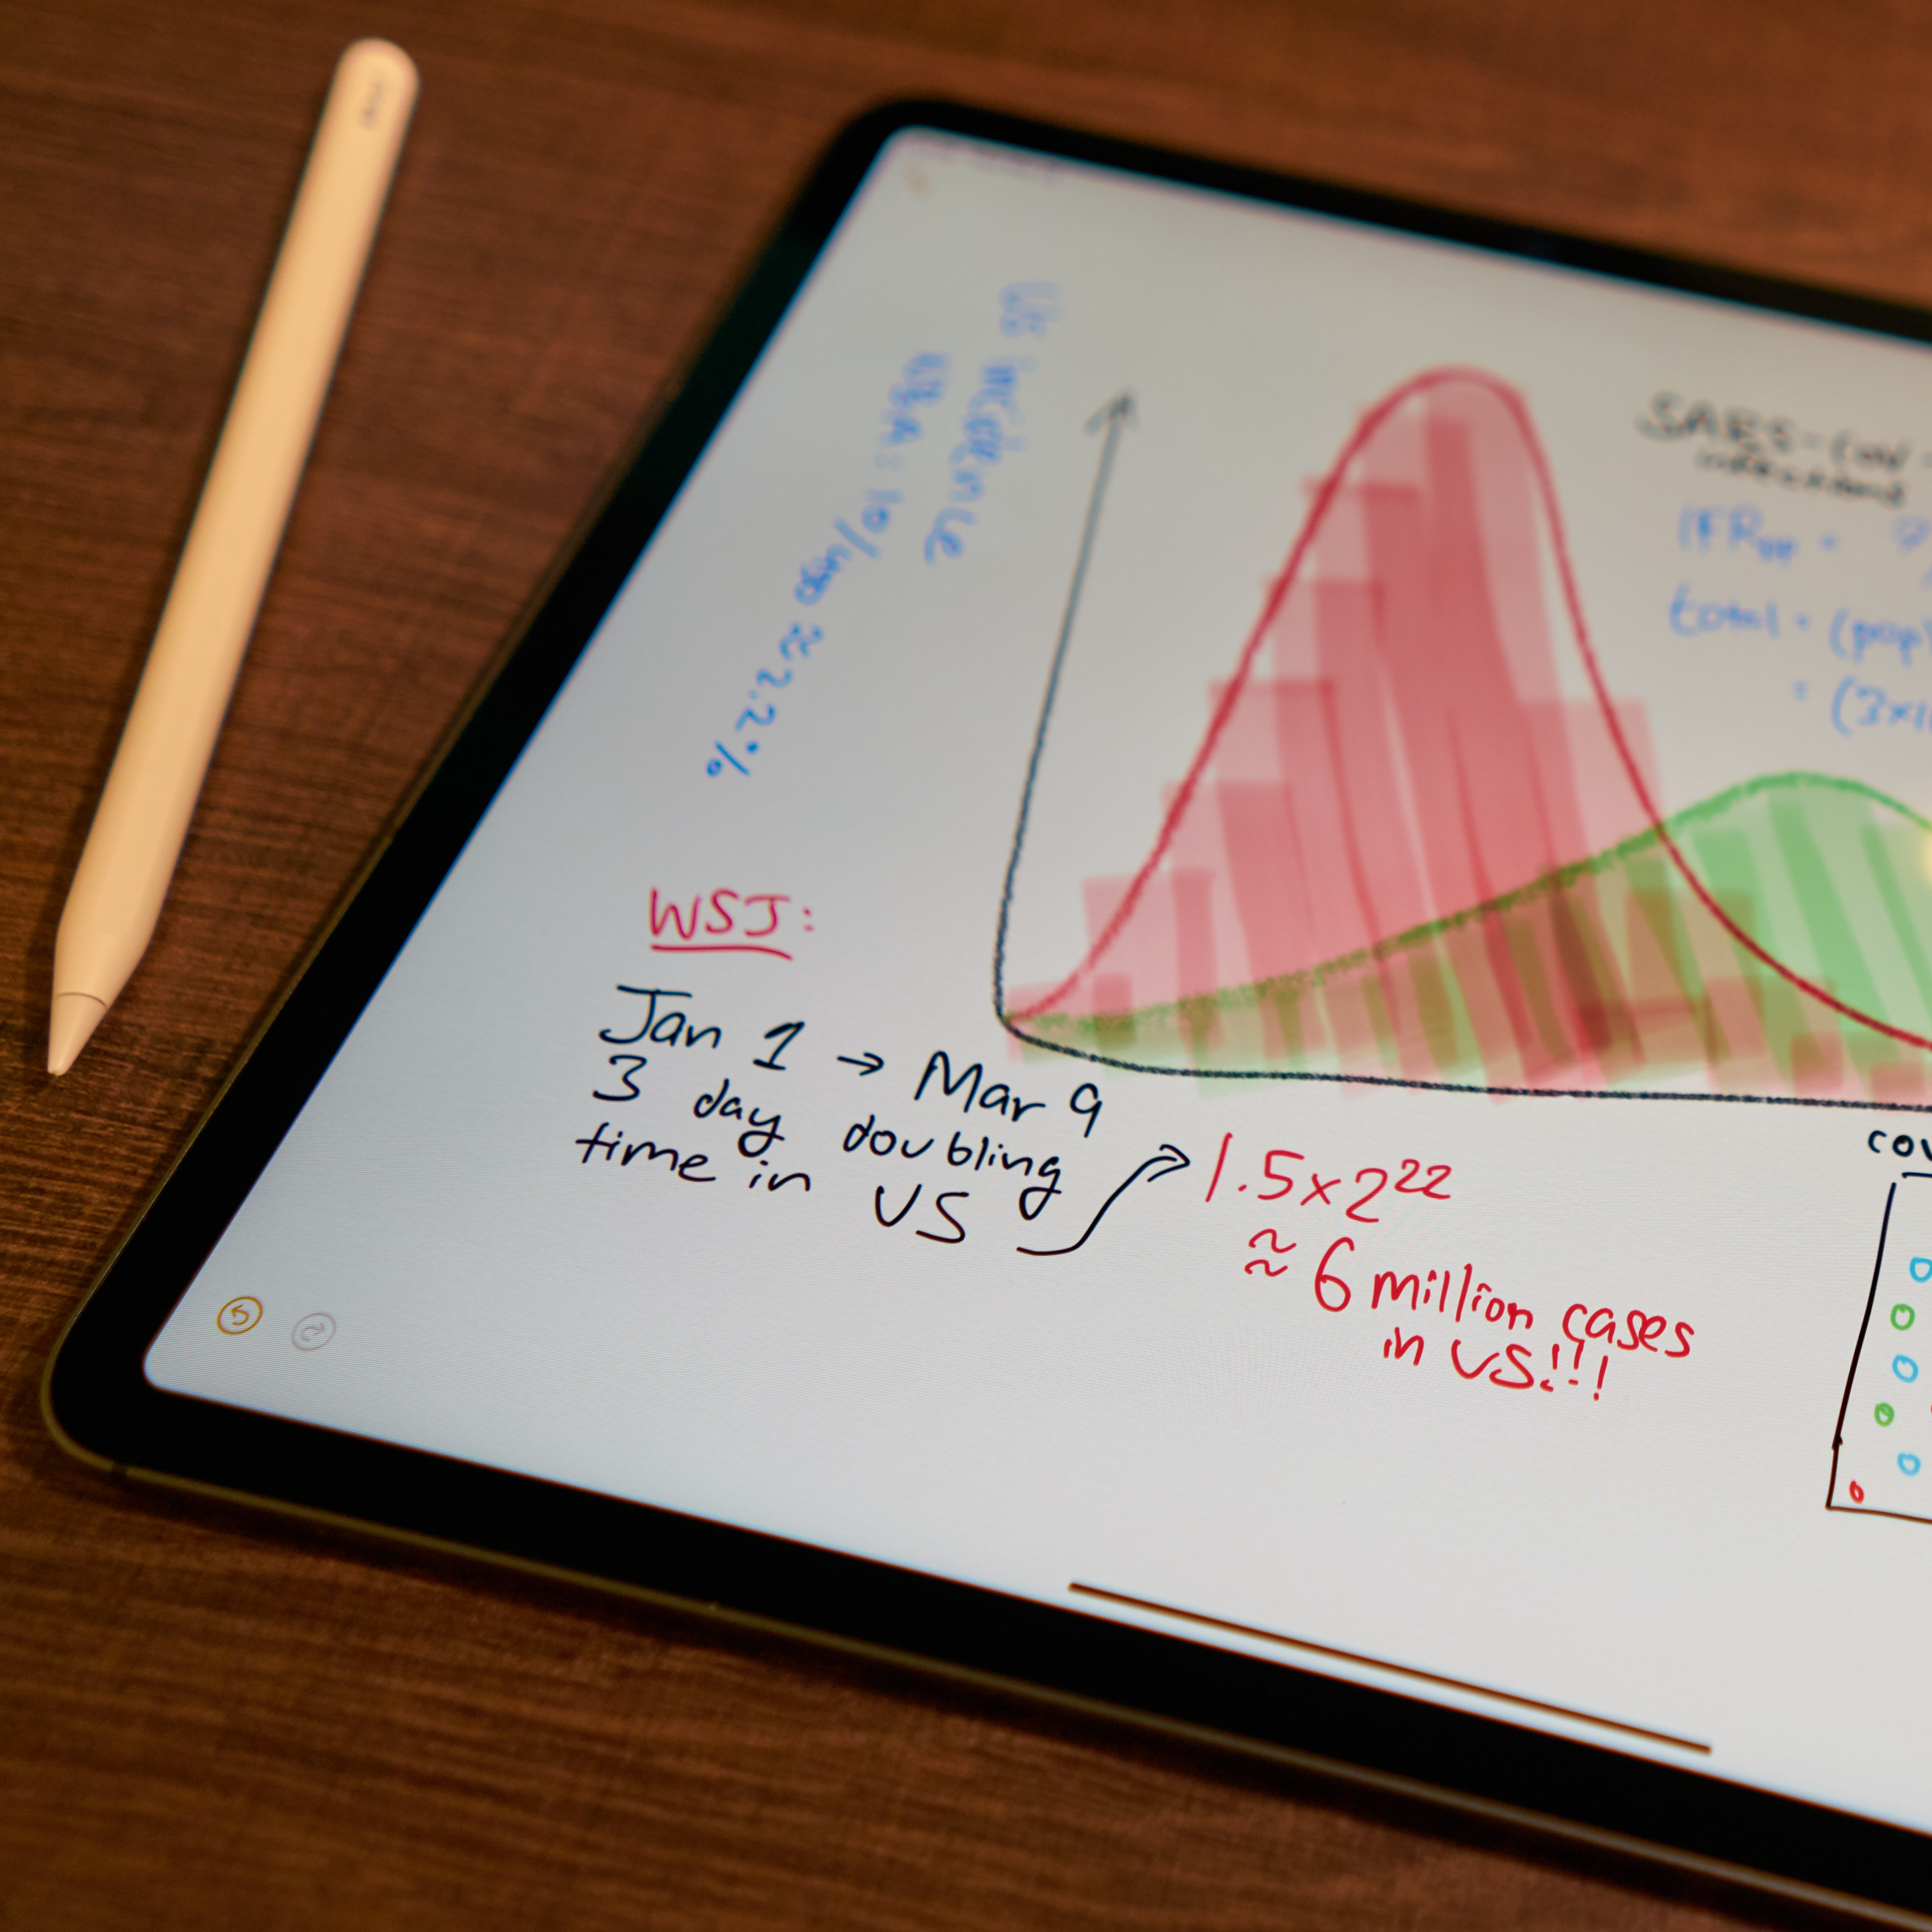 US incidence
NBA: 10/450 ≈ 2.2%
SARS-COV-
IFR
total = (pop
= (3x1
WSJ:
Jan 1 → Mar 9
3 day doubling
time in US
1.5x2²²
≈ 6 million cases
in US!!!
COV